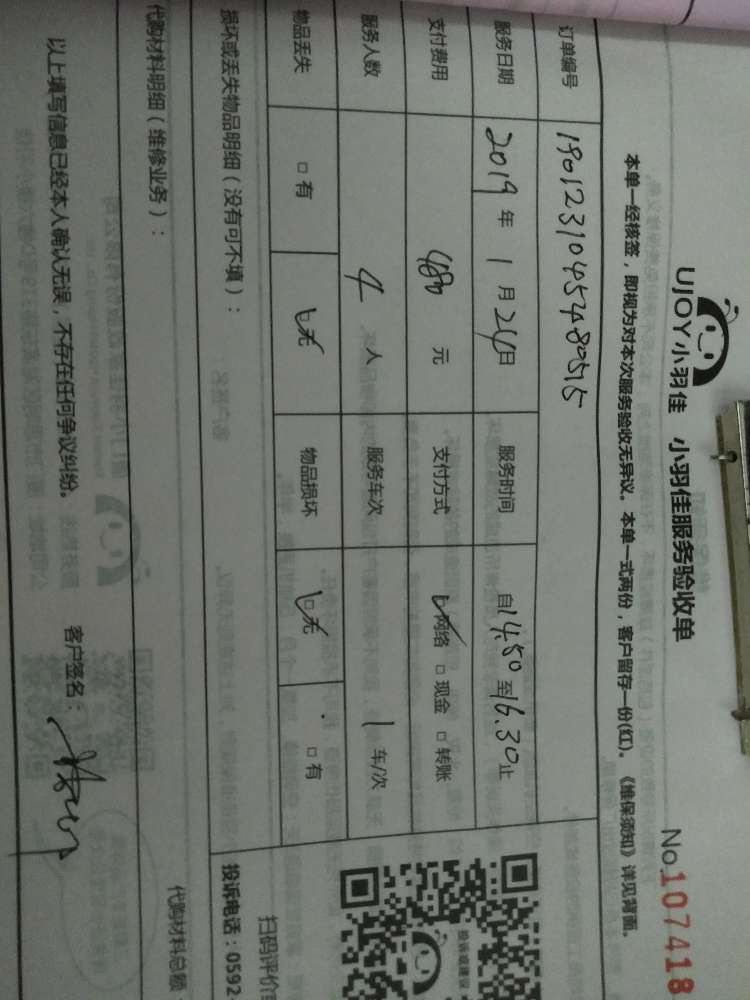 UJOY小羽佳 小羽佳服务验收单
No.107418
本单一经核签，即视为对本次服务验收无异议。本单一式两份，客户留存一份(红)。《维保须知》详见背面。
订单编号 19012310452480515
服务日期 2019年1月24日 服务时间 自14.50至16.30止
支付费用 480元 支付方式 ☑网络 □现金 □转账
服务人数 4人 服务车次 1车/次
物品丢失 □有 ☑无 物品损坏 ☑无 □有
损坏或丢失物品明细（没有可不填）：
代购材料明细（维修业务）：
代购材料总额
以上填写信息已经本人确认无误，不存在任何争议纠纷。 客户签名：
投诉或建议
扫码评价
投诉电话：0592